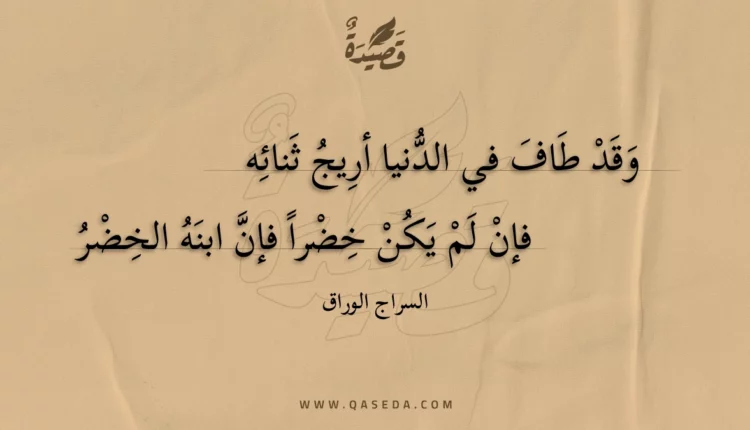 قَصِيدَةٌ
وَقَدْ طَافَ في الدُّنيا أرِيجُ ثَنائِه
فإنْ لَمْ يَكُنْ خِضْراً فإنَّ ابنَهُ الخِضْرُ
السراج الوراق
WWW.QASEDA.COM